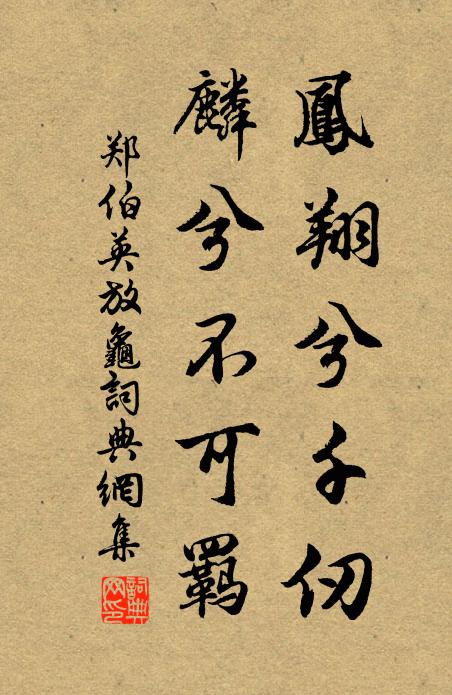 鳳翔兮千仞
麟兮不可羈
郑伯英放龜詞典網集
詞典网印